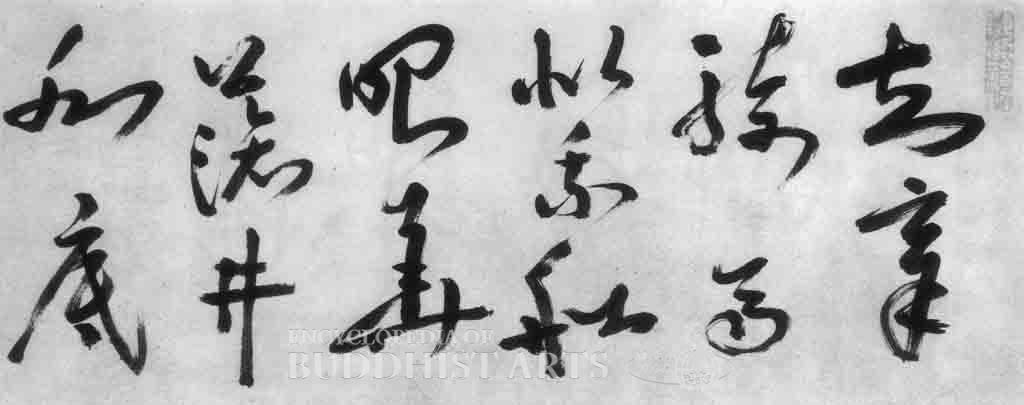 知章
騎馬
似乘船
眼華
落井
水底
ENCYCLOPEDIA OF
BUDDHIST ARTS